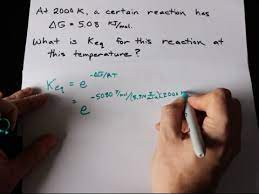 At 2000 K, a certain reaction has
ΔG = 5.08 KJ/mol.
What is Keq for this reaction at
this temperature?
Keq = e^-ΔG/RT
= e^-5080 J/mol/(8.314 )(2000 K